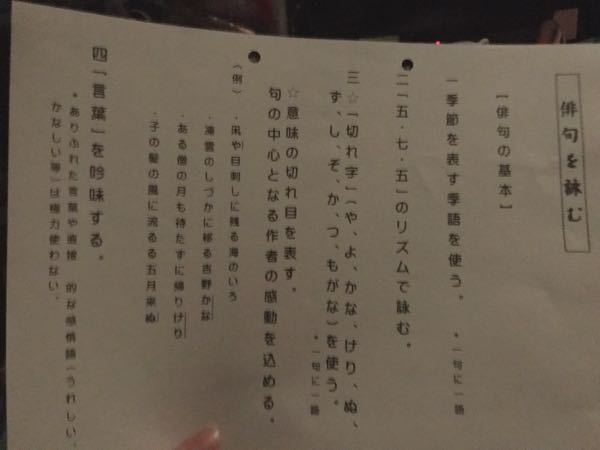 俳句を詠む
【俳句の基本】
一季節を表す季語を使う。 *一句に一語
二「五・七・五」のリズムで詠む。
三☆「切れ字」(や、よ、かな、けり、ぬ、
ず、し、ぞ、か、つ、もがな)を使う。
*一句に一語
☆意味の切れ目を表す。
句の中心となる作者の感動を込める。
(例)・凩や目刺しに残る海のいろ
・凍雲のしづかに移る吉野かな
・ある僧の月も待たずに帰りけり
・子の髪の風に流るる五月来ぬ
四「言葉」を吟味する。
*ありふれた言葉や直接 的な感情語(うれしい、
かなしい等)は極力使わない。